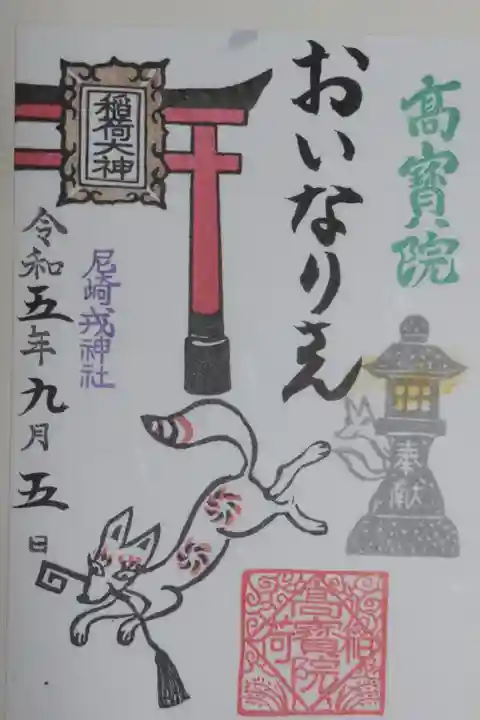 髙寳院
おいなりさん
奉献
稲荷大神
尼崎戎神社
令和五年九月五日
髙寳院
稲荷